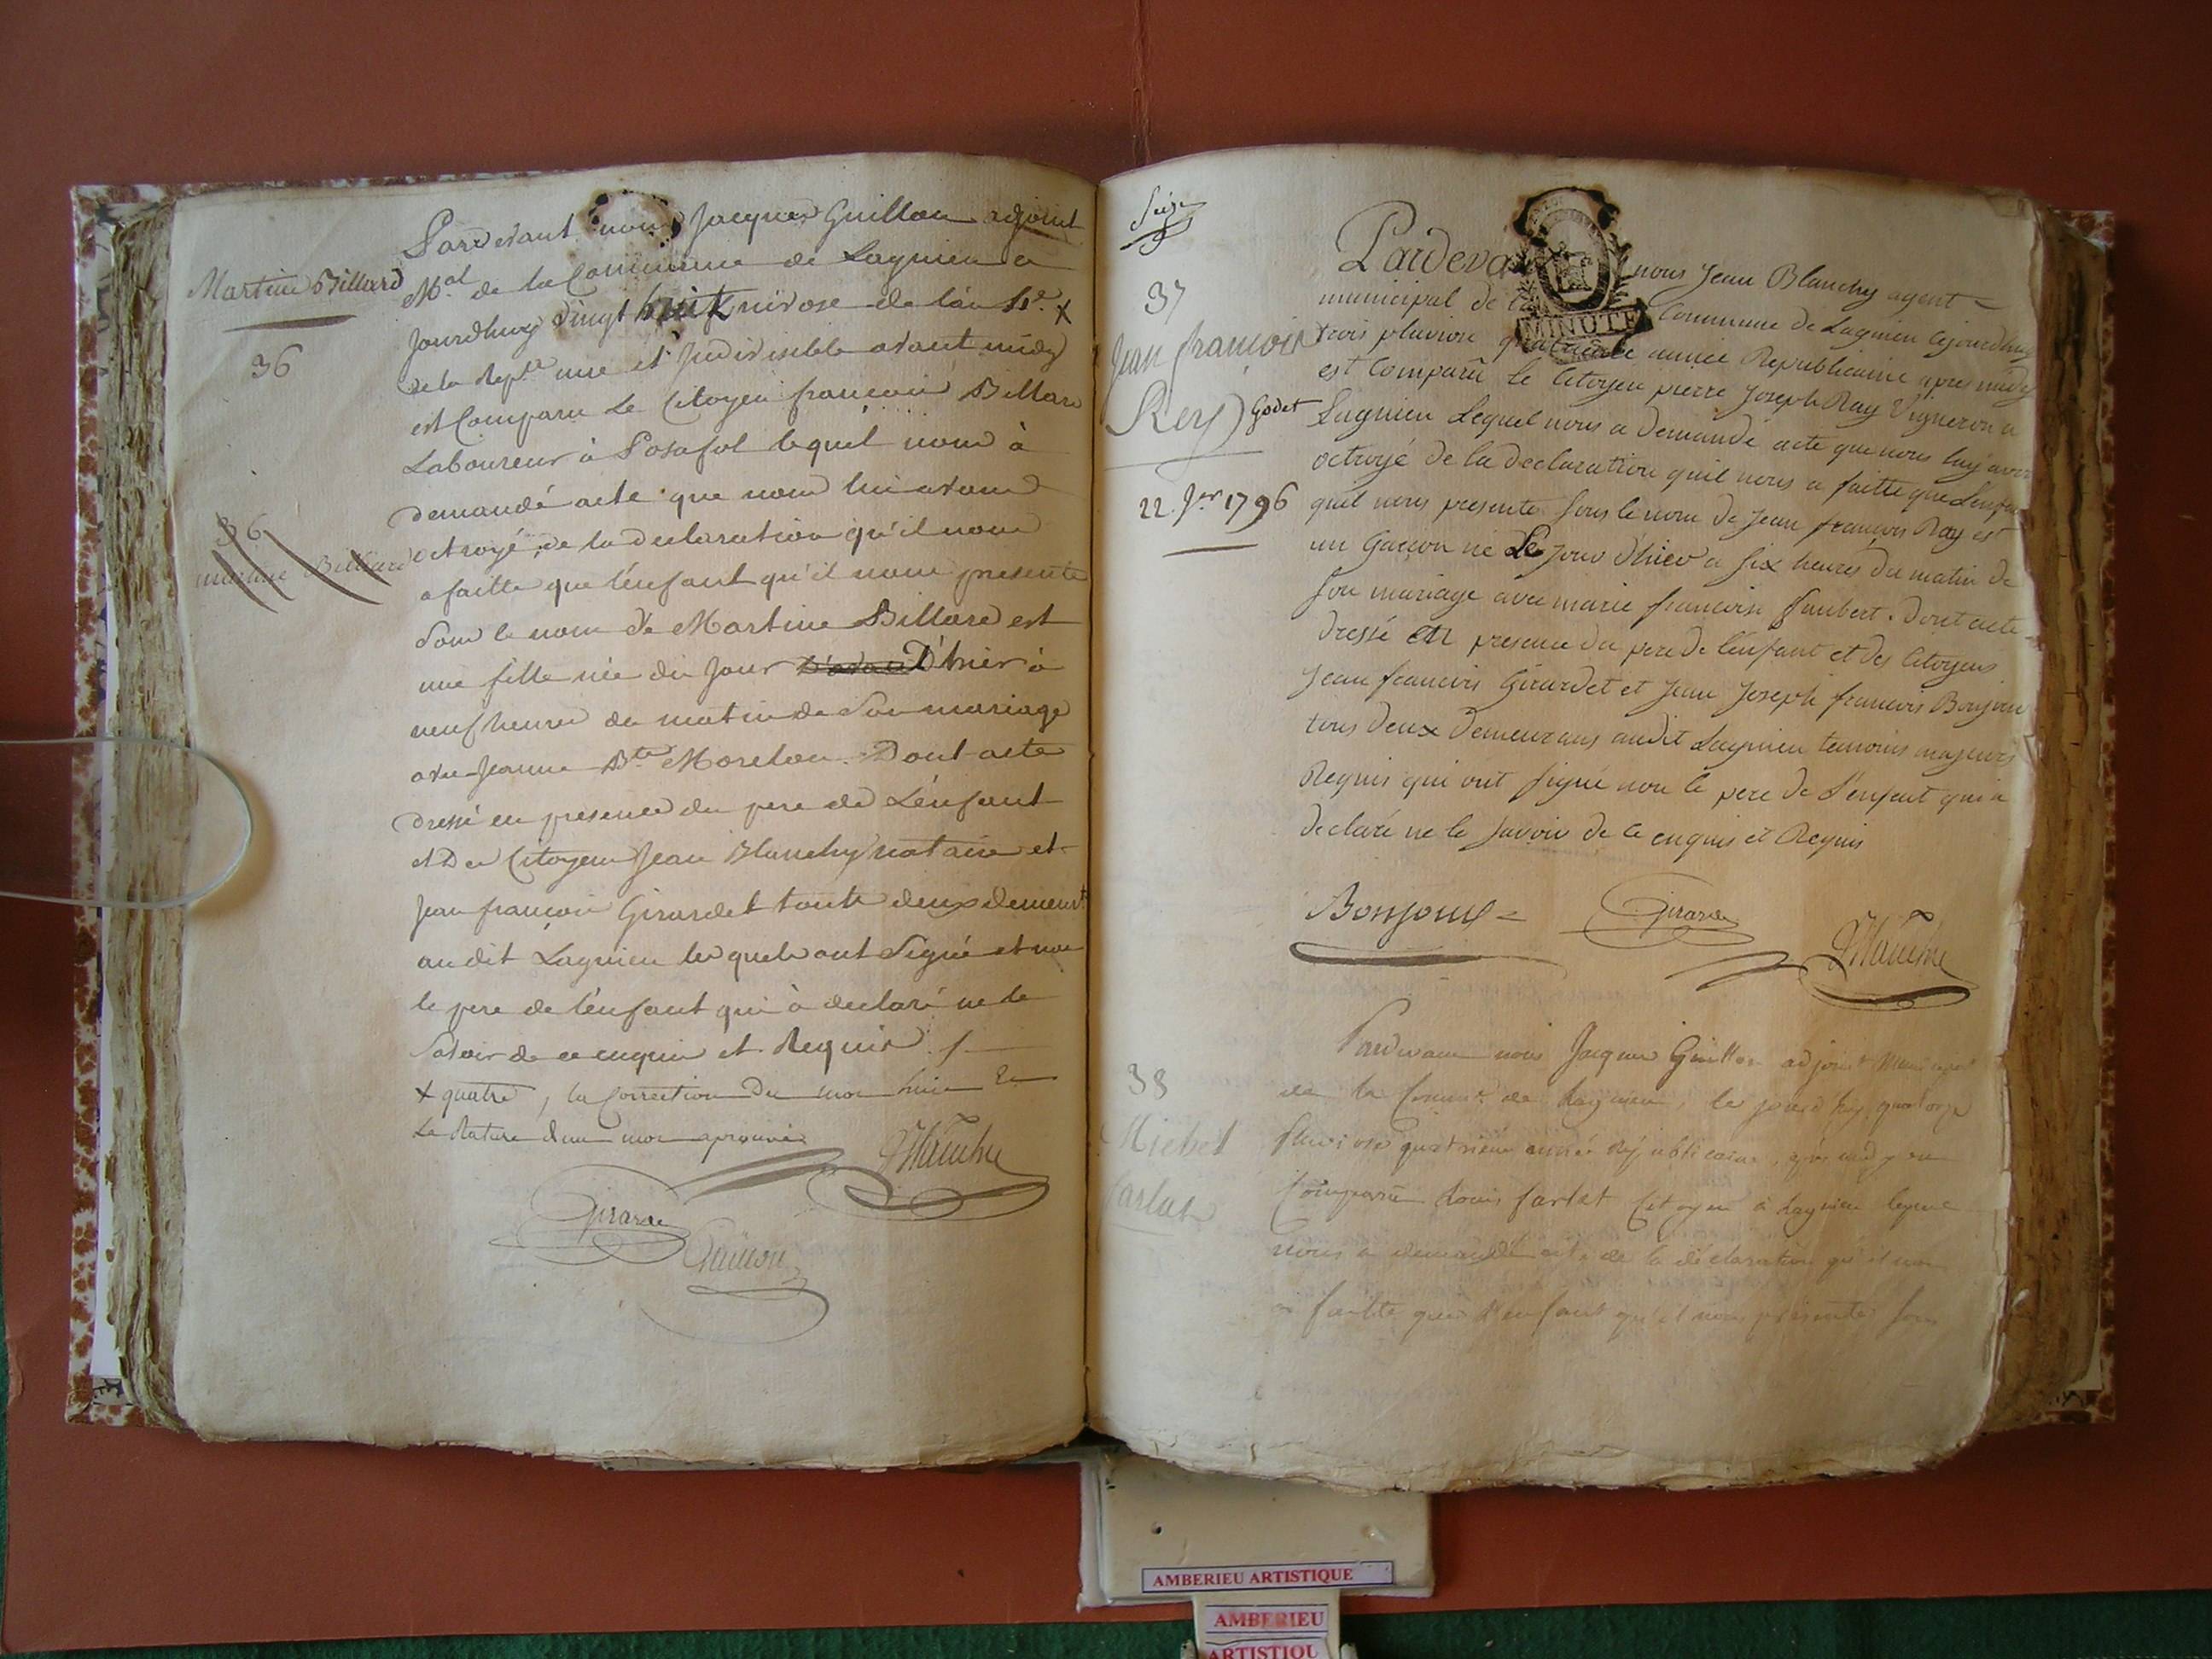 Martine Billard
36
36
martine Billiard
Pardevant nous Jacques Guillon adjoint
M.al de la Commune de Lagnieu ce
jourdhuy vingt huit nivose de lan 4e. +
de la Rep.e une et Indivisible avant midy
est Comparu le Citoyen francois Billard
Laboureur à Posafol lequel nous à
demandé acte que nous lui avons
octroyé de la declaration qu'il nous
a faitte que l'enfant qu'il nous presente
sous le nom de Martine Billard est
une fille née du jour D'hier à
neuf heures du matin de son mariage
avec Jeanne B.te Morelon. Dont acte
dressé en presence du pere de L'enfant
et Des Citoyens Jean Blanchy notaire et
jean francois Girardet touts deux demeur.t
audit Lagnieu lesquels ont signé et non
le pere de l'enfant qui à declaré ne le
savoir de ce enquis et Requis
+ quatre, la Correction du mot huit et
La Rature d'un mot aprouvés
Blanchy
Girardet
Guillon
Seize
37
Jean francois
Rey Godet
22. J.er 1796
Pardevant nous Jean Blanchy agent
municipal de la Commune de Lagnieu cejourdhuy
trois pluviose quatrieme année Republicaine apres midy
est Comparu le Citoyen pierre Joseph Ray Vigneron a
Lagnieu Lequel nous a demandé acte que nous luy avons
octroyé de la declaration quil nous a faitte que Lenfant
quil nous presente sous le nom de Jean francois Ray est
un Garcon né Le jour d'hier a six heures du matin de
son mariage avec marie francoise Jaubert. dont acte
dressé en presence du pere de l'enfant et des Citoyens
Jean francois Girardet et Jean Joseph francois Bonjour
tous deux demeurans audit Lagnieu temoins majeurs
Requis qui ont signé non le pere de L'enfant qui a
declaré ne le savoir de ce enquis et Requis
Bonjour
Girardet
Blanchy
MINUTE
38
Michel
Sarlat
Pardevant nous Jacques Guillon adjoint Municipal
de la Comm.e de Lagnieu, le jourdhuy quatorze
pluviose quatrieme année Republicaine, après midy est
Comparu Louis Sarlat Citoyen à Lagnieu lequel
nous a demandé acte de la déclaration qu'il nous
a faitte que L'enfant qu'il nous présente sous
AMBERIEU ARTISTIQUE
AMBERIEU
ARTISTIQU